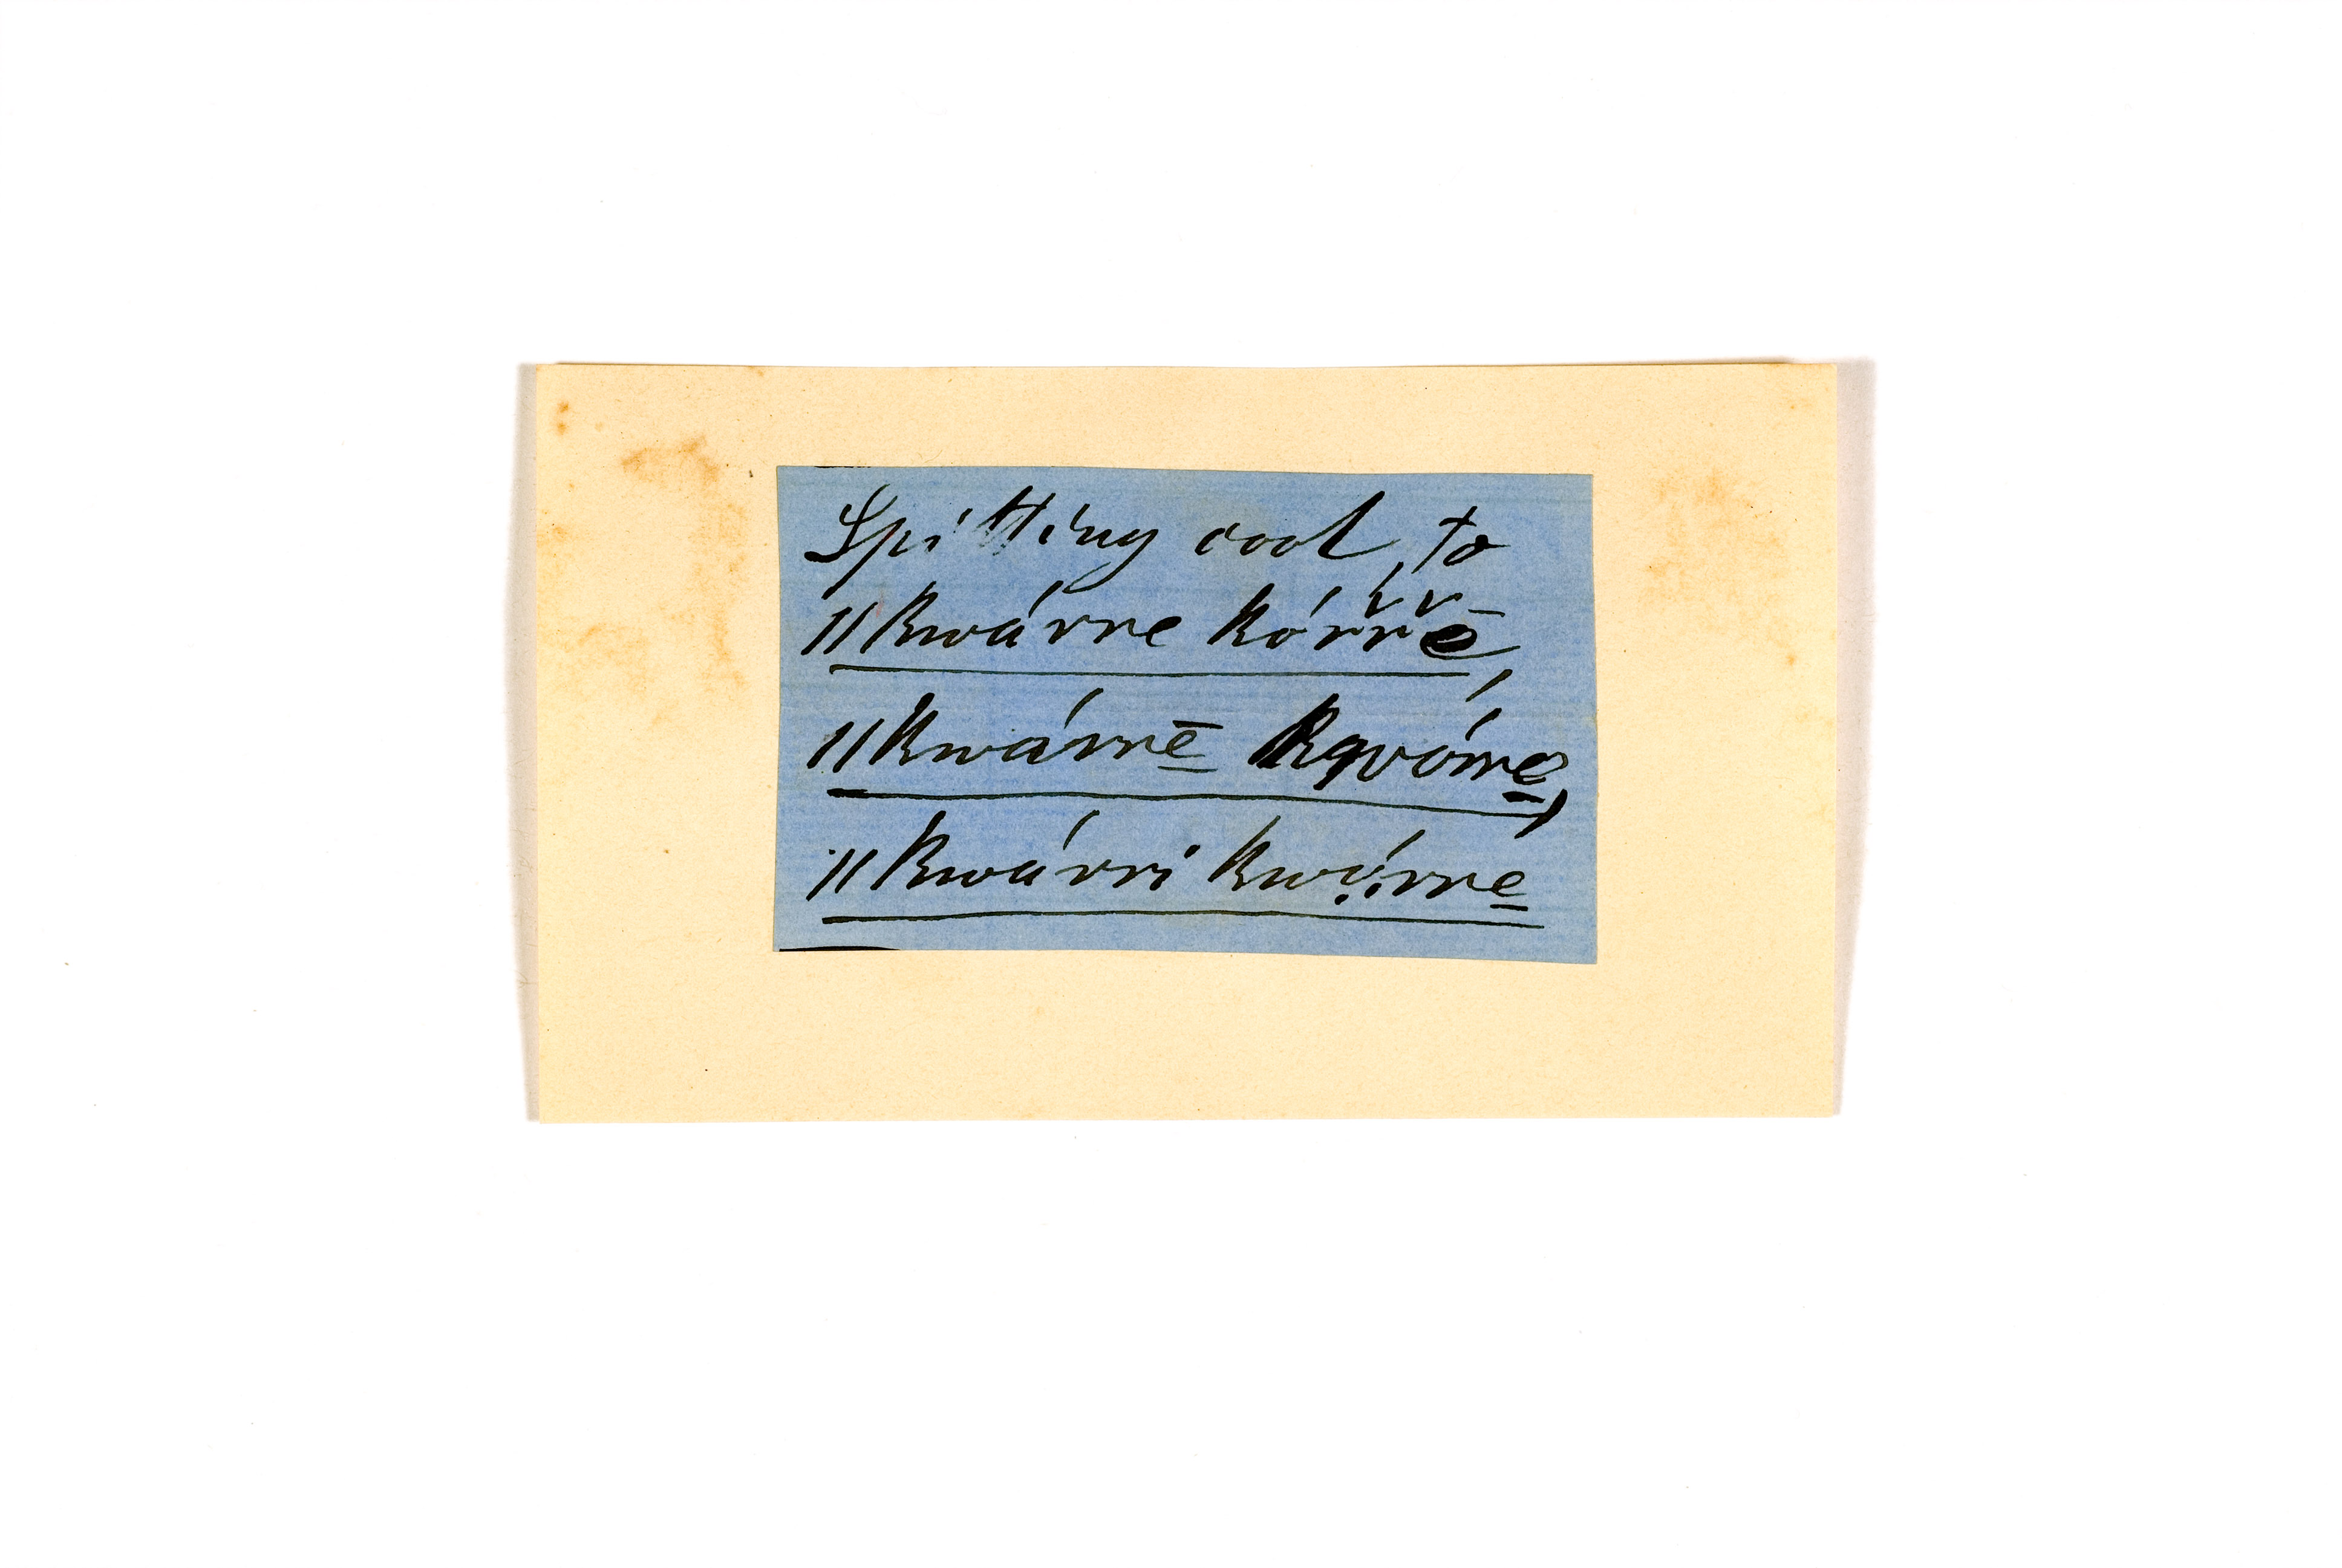 Spitting cool, to
ǁkwárre kórřřē,
ǁkwárrē̱ kwórre̱,
ǁkwárri kwạ́rre̱